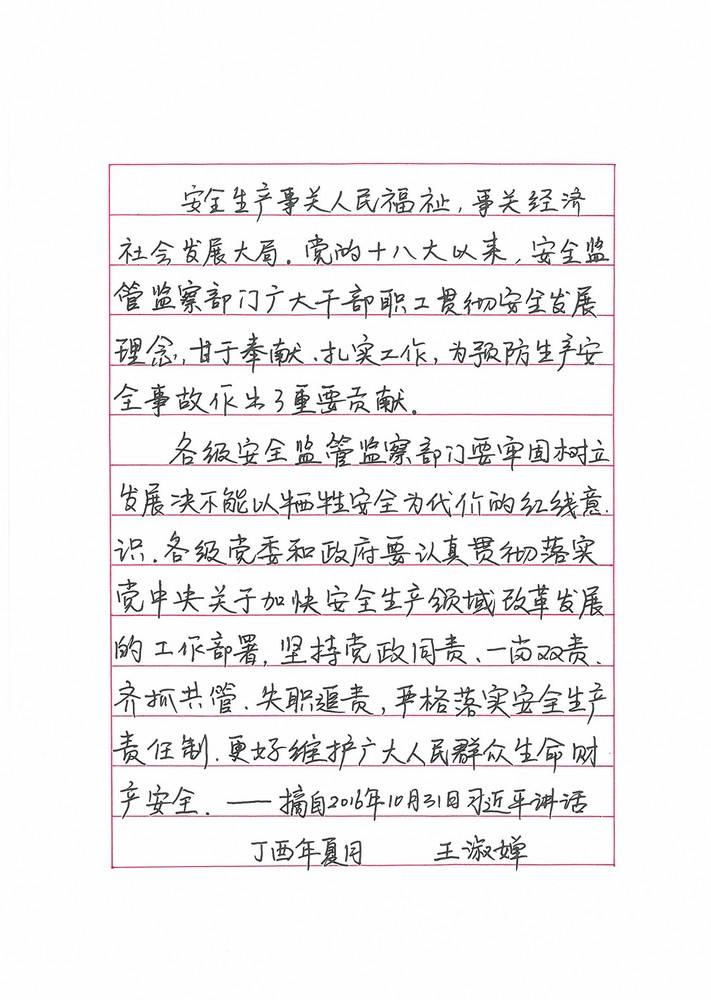 安全生产事关人民福祉,事关经济
社会发展大局。党的十八大以来,安全监
管监察部门广大干部职工贯彻安全发展
理念,甘于奉献、扎实工作,为预防生产安
全事故作出了重要贡献。
各级安全监管监察部门要牢固树立
发展决不能以牺牲安全为代价的红线意
识。各级党委和政府要认真贯彻落实
党中央关于加快安全生产领域改革发展
的工作部署,坚持党政同责、一岗双责、
齐抓共管、失职追责,严格落实安全生产
责任制。更好维护广大人民群众生命财
产安全。——摘自2016年10月31日习近平讲话
丁酉年夏月 王淑婵